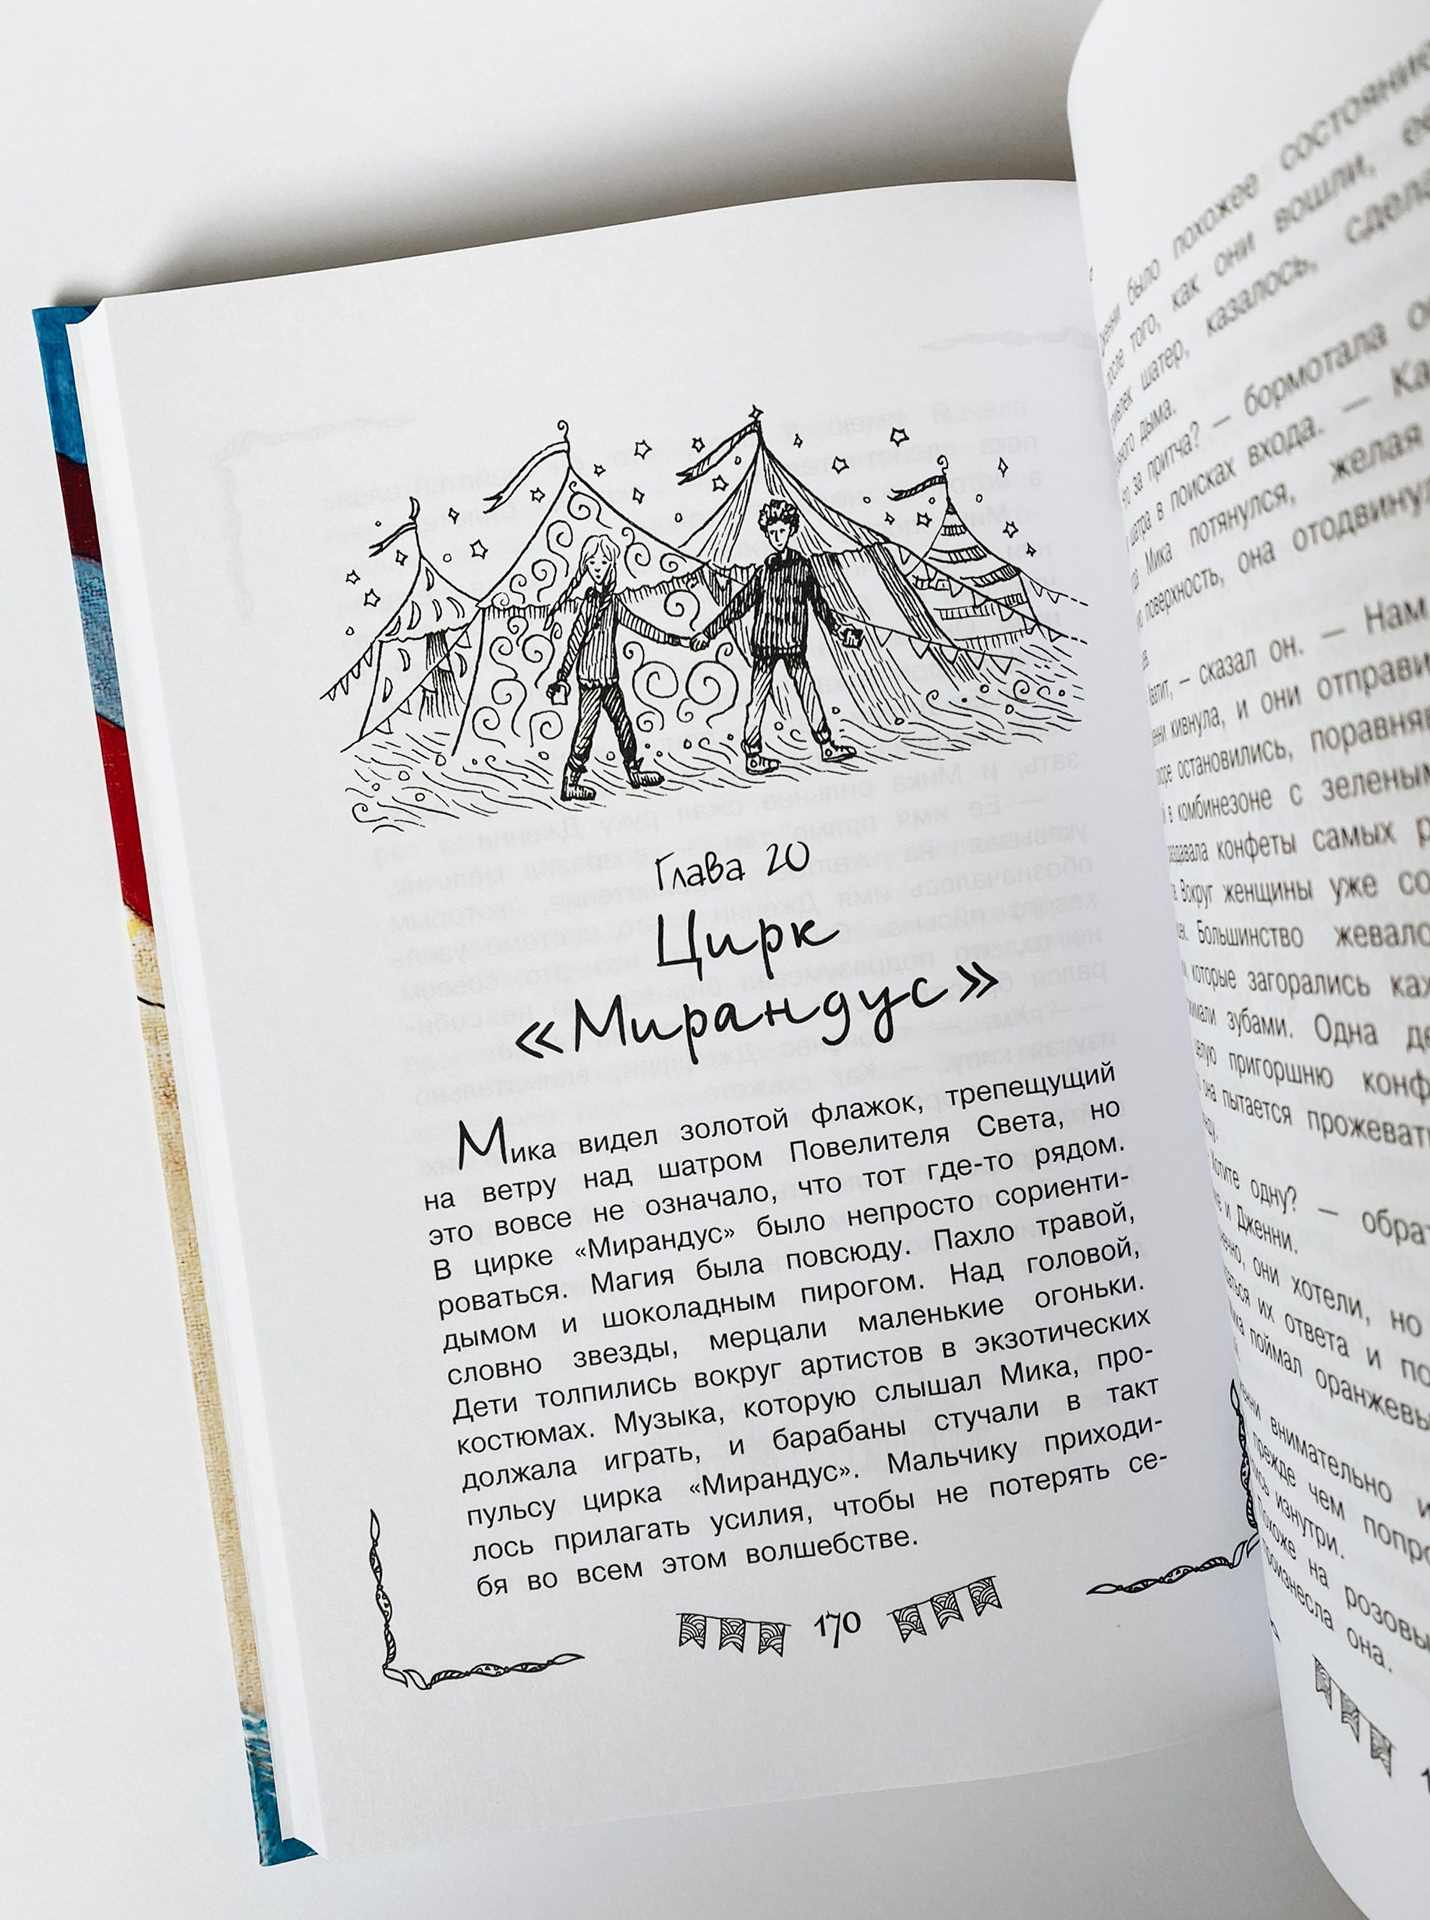 Глава 20
Цирк
«Мирандус»
Мика видел золотой флажок, трепещущий
на ветру над шатром Повелителя Света, но
это вовсе не означало, что тот где-то рядом.
В цирке «Мирандус» было непросто сориенти-
роваться. Магия была повсюду. Пахло травой,
дымом и шоколадным пирогом. Над головой,
словно звезды, мерцали маленькие огоньки.
Дети толпились вокруг артистов в экзотических
костюмах. Музыка, которую слышал Мика, про-
должала играть, и барабаны стучали в такт
пульсу цирка «Мирандус». Мальчику приходи-
лось прилагать усилия, чтобы не потерять се-
бя во всем этом волшебстве.
170
было похожее состояние
после того, как они вошли, её
шатер, казалось, сдела
дыма.
за притча? — бормотала о
шатра в поисках входа. — Ка
Мика потянулся, желая
поверхность, она отодвинул
— сказал он. — Нам
кивнула, и они отправи
остановились, поравняв
в комбинезоне с зеленым
конфеты самых р
Вокруг женщины уже со
Большинство жевало
которые загорались ка
зубами. Одна де
пригоршню конф
она пытается прожевать
одну? — обрат
и Дженни.
они хотели, но
их ответа и по
поймал оранжевы
внимательно и
прежде чем попро
изнутри.
Похоже на розовы
произнесла она.